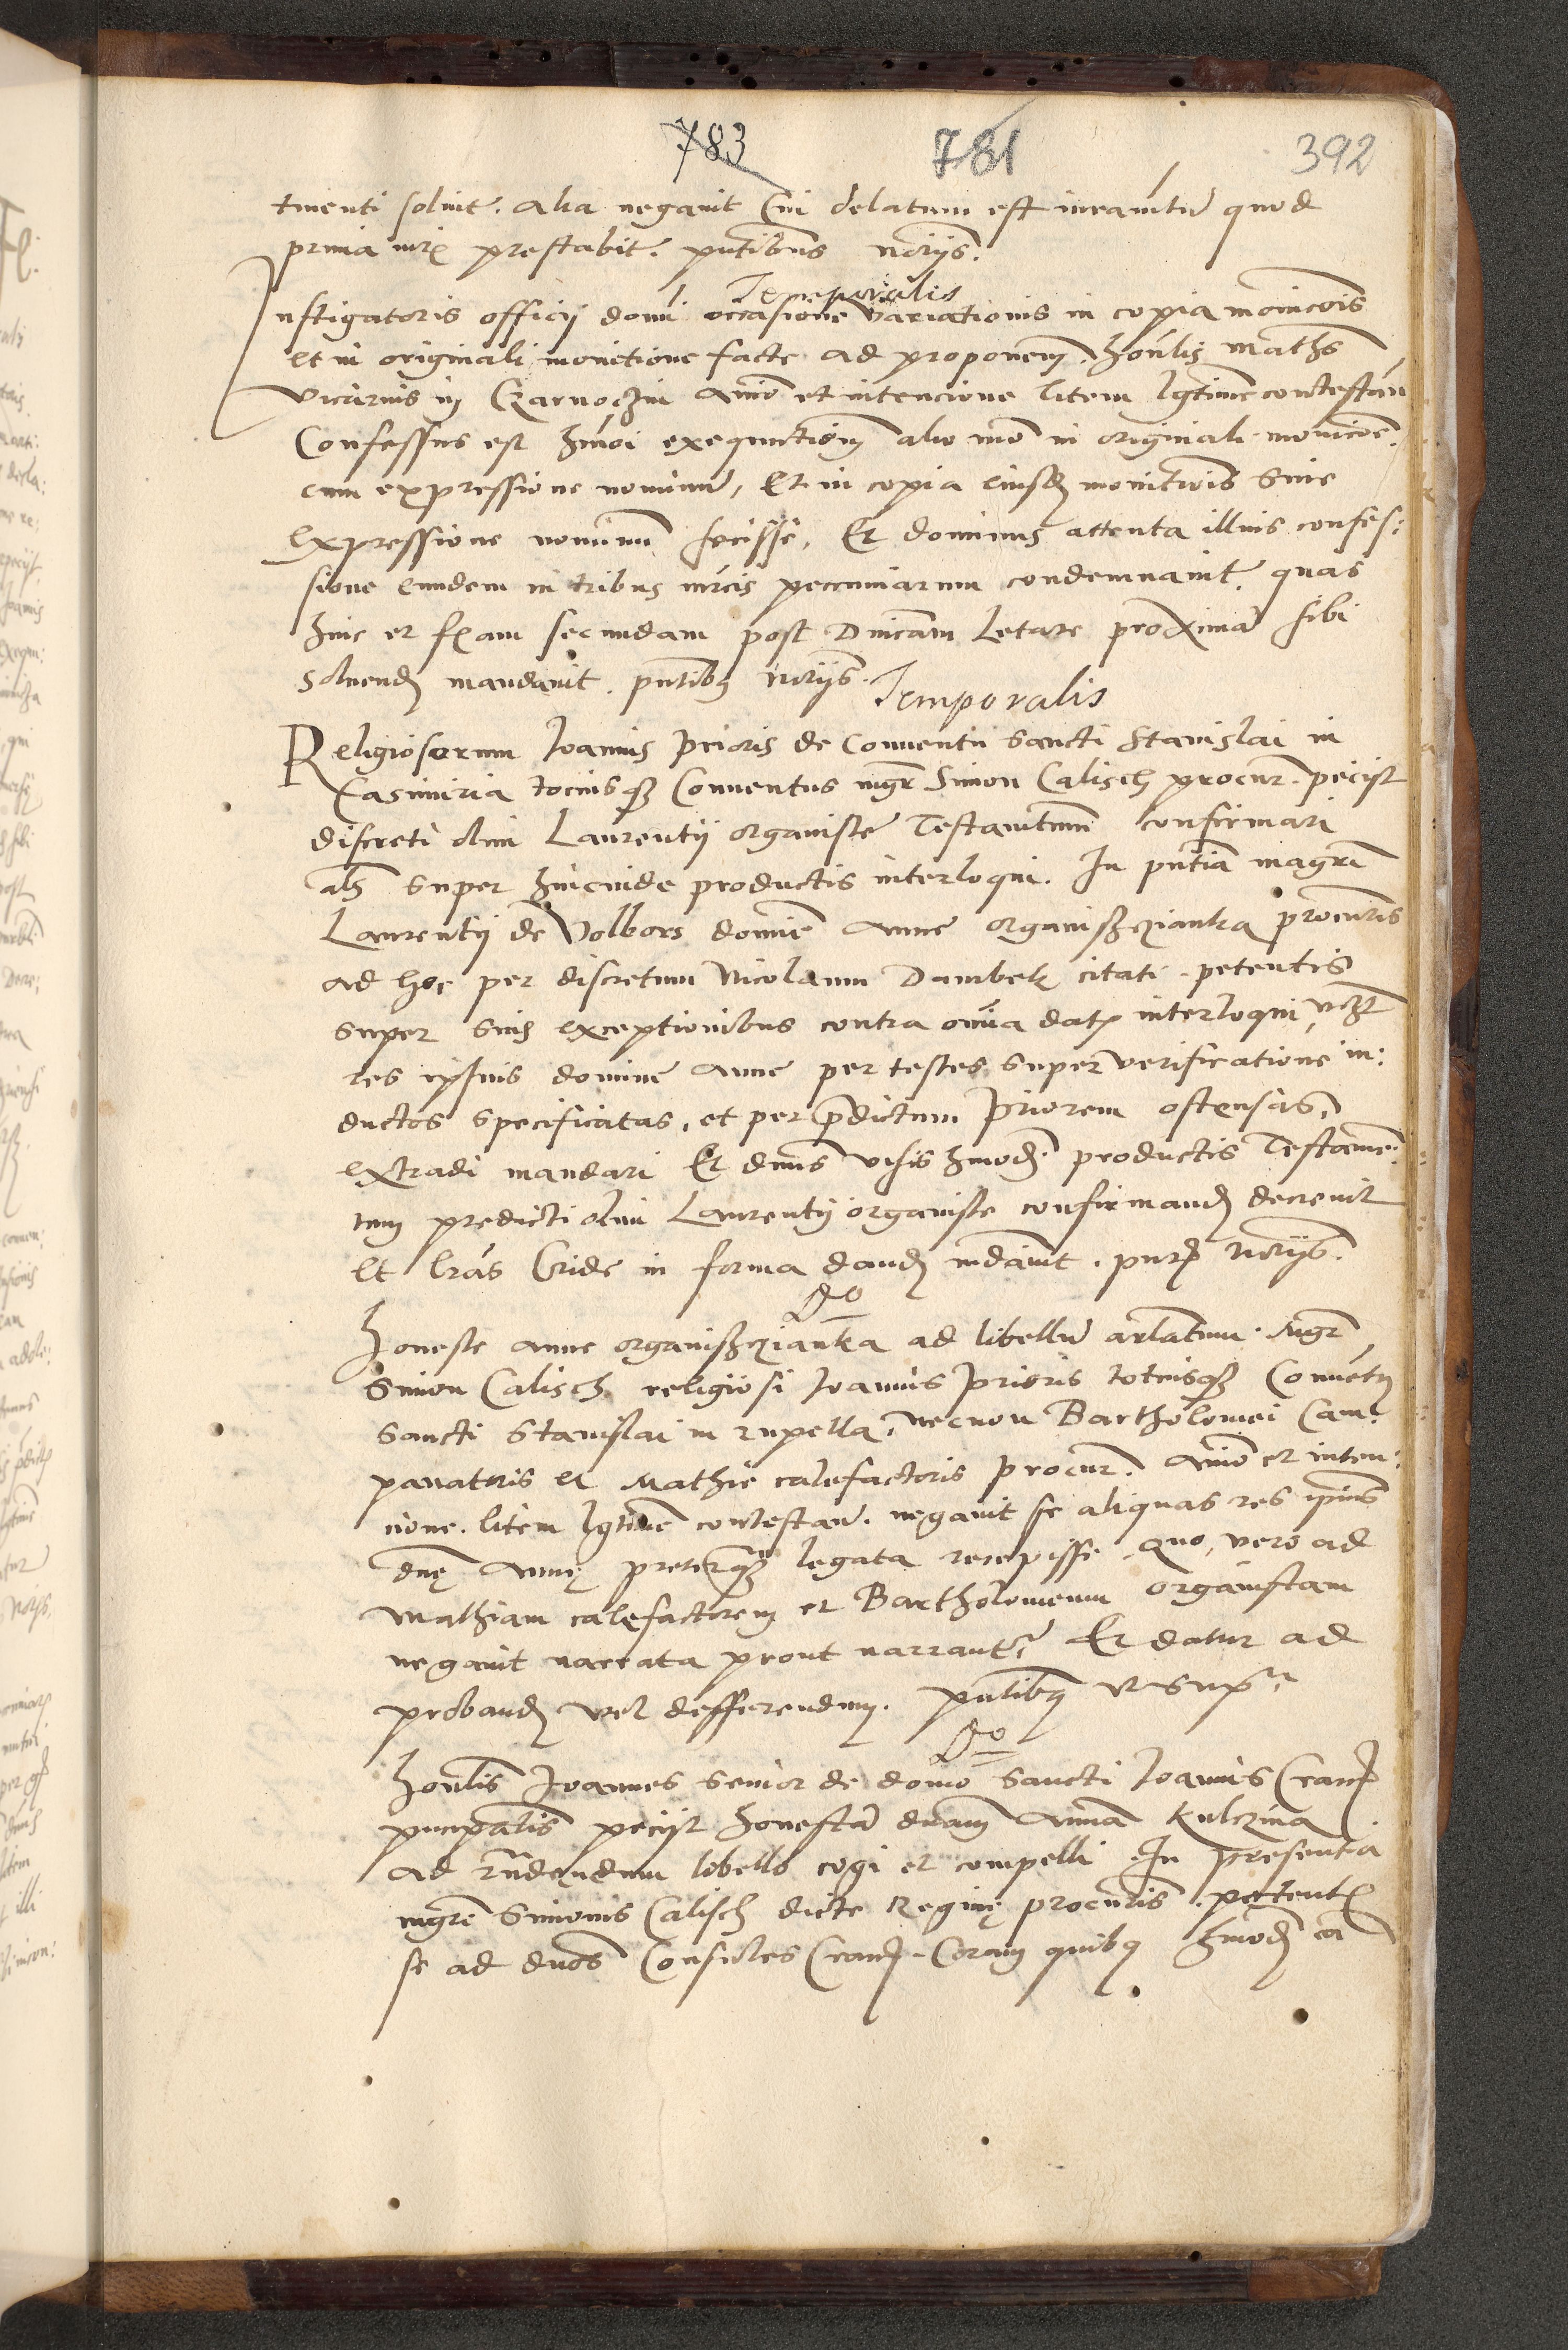 783 781 392
tinenti solvit. Alia negavit Cui delatum est iuramentu quod
prima iuris prestabit. pntibus notrijs.
Temporalis
Instigatoris officij domi occasione variationis in copia monicois
et in originali monitione facte ad proponem. honlis Maths
vicarius in Czarnoczin animo et intencione litem lgtime contestan
Confessus est hmoi exequutionem alio modo in originali monicoe
cum expressione nominu, Et in copia eiusdem monitiois sine
expressione nominu fecisse, Et dominus attenta illius confes:
sione eundem in tribus mrcis pecuniarum condemnavit, quas
hinc et fram secundam post Dnicam Letare proxima sibi
solvend mandavit. pntibus notrijs.
Temporalis
Religiosorum Joannis Prioris de Conventu Sancti Stanislai in
Casimiria tociusq Conventus mgr Simon Calisch procur. peciit
discreti olim Laurentij organiste Testamtum confirmari
als super hincinde productis interloqui. In pntia magri
Laurentij de Volbors domine Anne organisczianka procuris
ad hoc per discretum Nicolaum Dambek citati petentis
super suis exceptionibus contra omnia dat interloqui,
res ipsius domine Anne per testes super verificatione in:
ductos specificatas, et per predictum Priorem ostensas,
extradi mandari Et dnus visis hmodi productis Testamen:
tum predicti olim Laurentij organiste confirmand decrevit
Et lras Cride in forma dand mdavit. pntib notrijs.
Do
Honeste Anne organisczianka ad libellu arlatum. Mgr
Simon Calisch religiosi Joannis Prioris totiusq Convetus
Sancti Stanislai in rupella, necnon Bartholomei Cam:
panatoris et Mathie calefactoris procur. Animo et inten:
cione. litem lgtime contestan. negavit se aliquas res ipsius
dne Anne preterq legata recepisse, quo vero ad
Mathiam calefactorem et Bartholomeum organistam
negavit narrata prout narrantur Et datur ad
proband vel defferendum. pntibus ut supra
Do
Honlis Joannes senior de domo Sancti Joannis Crac
principalis peciit honesta dnam Anna Kulczina
ad rndendum libello cogi et compelli In presentia
mgri Simonis Calisch dicte Regine procuris. petent
se ad dnos Consules Crac. Coram quibus hmodi ca